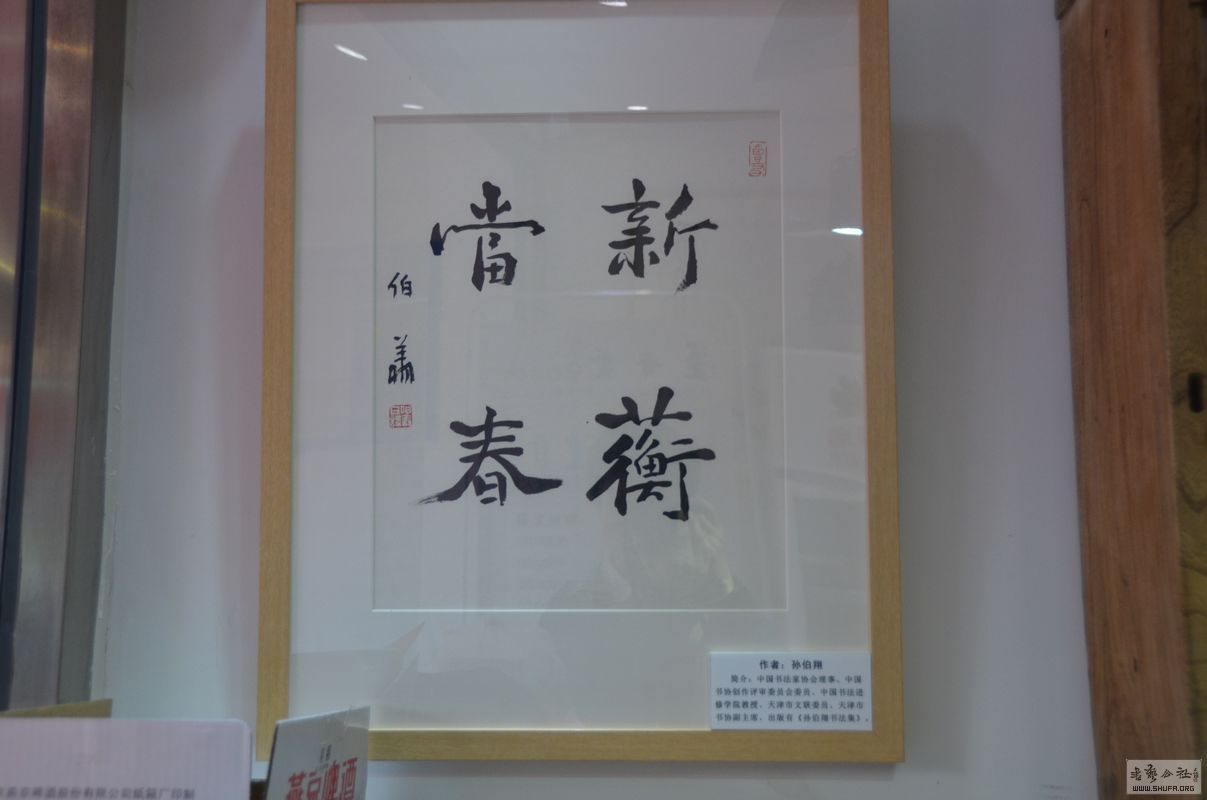 新蘅
當春
伯翔
作者：孙伯翔
简介：中国书法家协会理事、中国
书协创作评审委员会委员、中国书法进
修学院教授、天津市文联委员、天津市
书协副主席，出版有《孙伯翔书法集》。
燕京啤酒
京燕京啤酒股份有限公司纸箱厂印制
書藝公社
WWW.SHUFA.ORG